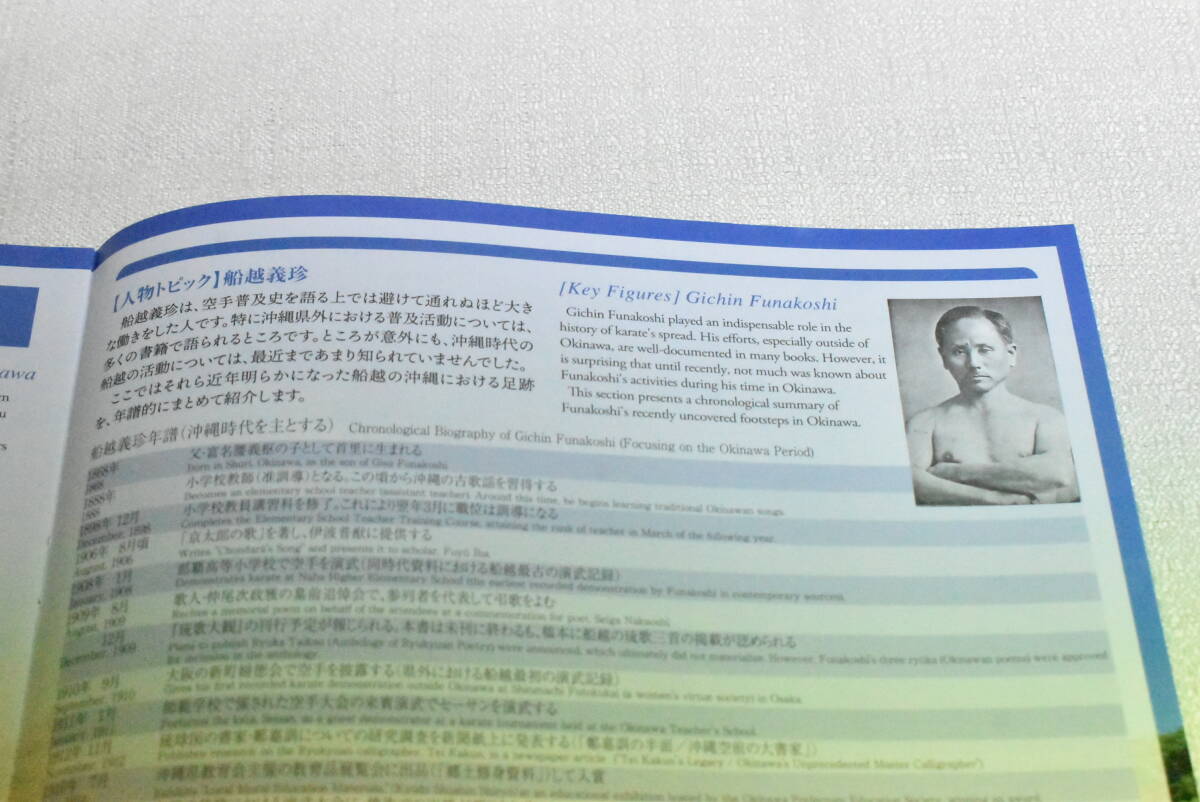 awa
【人物トピック】船越義珍
船越義珍は、空手普及史を語る上では避けて通れぬほど大き
な働きをした人です。特に沖縄県外における普及活動については、
多くの書籍で語られるところです。ところが意外にも、沖縄時代の
船越の活動については、最近まであまり知られていませんでした。
ここではそれら近年明らかになった船越の沖縄における足跡
を、年譜的にまとめて紹介します。
[Key Figures] Gichin Funakoshi
Gichin Funakoshi played an indispensable role in the
history of karate's spread. His efforts, especially outside of
Okinawa, are well-documented in many books. However, it
is surprising that until recently, not much was known about
Funakoshi's activities during his time in Okinawa.
This section presents a chronological summary of
Funakoshi's recently uncovered footsteps in Okinawa.
船越義珍年譜（沖縄時代を主とする） Chronological Biography of Gichin Funakoshi (Focusing on the Okinawa Period)
1868年 父・富名腰義枢の子として首里に生まれる
1868 Born in Shuri, Okinawa, as the son of Gisu Funakoshi
1888年 小学校教師（准訓導）となる。この頃から沖縄の古歌謡を習得する
1888 Becomes an elementary school teacher (assistant teacher). Around this time, he begins learning traditional Okinawan songs.
1898年 12月 小学校教員講習科を修了。これにより翌年3月に職位は訓導になる
December, 1898 Completes the Elementary School Teacher Training Course, attaining the rank of teacher in March of the following year.
1906年 8月頃 「京太郎の歌」を著し、伊波普猷に提供する
August, 1906 Writes "Chondara's Song" and presents it to scholar, Fuyū Iha.
1908年 1月 那覇高等小学校で空手を演武（同時代資料における船越最古の演武記録）
January, 1908 Demonstrates karate at Naha Higher Elementary School (the earliest recorded demonstration by Funakoshi in contemporary sources).
1909年 8月 歌人・仲尾次政雅の墓前追悼会で、参列者を代表して弔歌をよむ
August, 1909 Recites a memorial poem on behalf of the attendees at a commemoration for poet, Seiga Nakaoshi
12月 『琉歌大観』の刊行予定が報じられる。本書は未刊に終わるも、稿本に船越の琉歌三首の掲載が認められる
December, 1909 Plans to publish Ryuka Taikan (Anthology of Ryukyuan Poetry) were announced, which ultimately did not materialize. However, Funakoshi's three ryūka (Okinawan poems) were approved
for inclusion in the anthology.
1910年 9月 大阪の新町婦徳会で空手を披露する（県外における船越最初の演武記録）
September, 1910 Gives his first recorded karate demonstration outside Okinawa at Shinmachi Futokukai (a women's virtue society) in Osaka.
1911年 1月 師範学校で催された空手大会の来賓演武でセーサンを演武する
January, 1911 Performs the kata, Seisan, as a guest demonstrator at a karate tournament held at the Okinawa Teacher's School.
11月 琉球国の書家・鄭嘉訓についての研究調査を新聞紙上に発表する（「鄭嘉訓の半面／沖縄空前の大書家」）
7月 沖縄県教育会主催の教育品展覧会に出品（「郷土修身資料」）して入賞